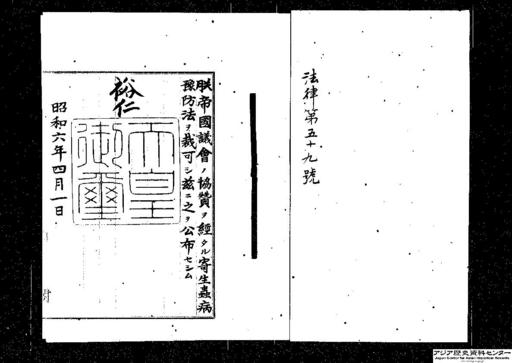 法律第五十九號
朕帝國議會ノ協贊ヲ經タル寄生蟲病
豫防法ヲ裁可シ茲ニ之ヲ公布セシム
裕仁
天皇
御璽
昭和六年四月一日
アジア歴史資料センター
Japan Center for Asian Historical Records